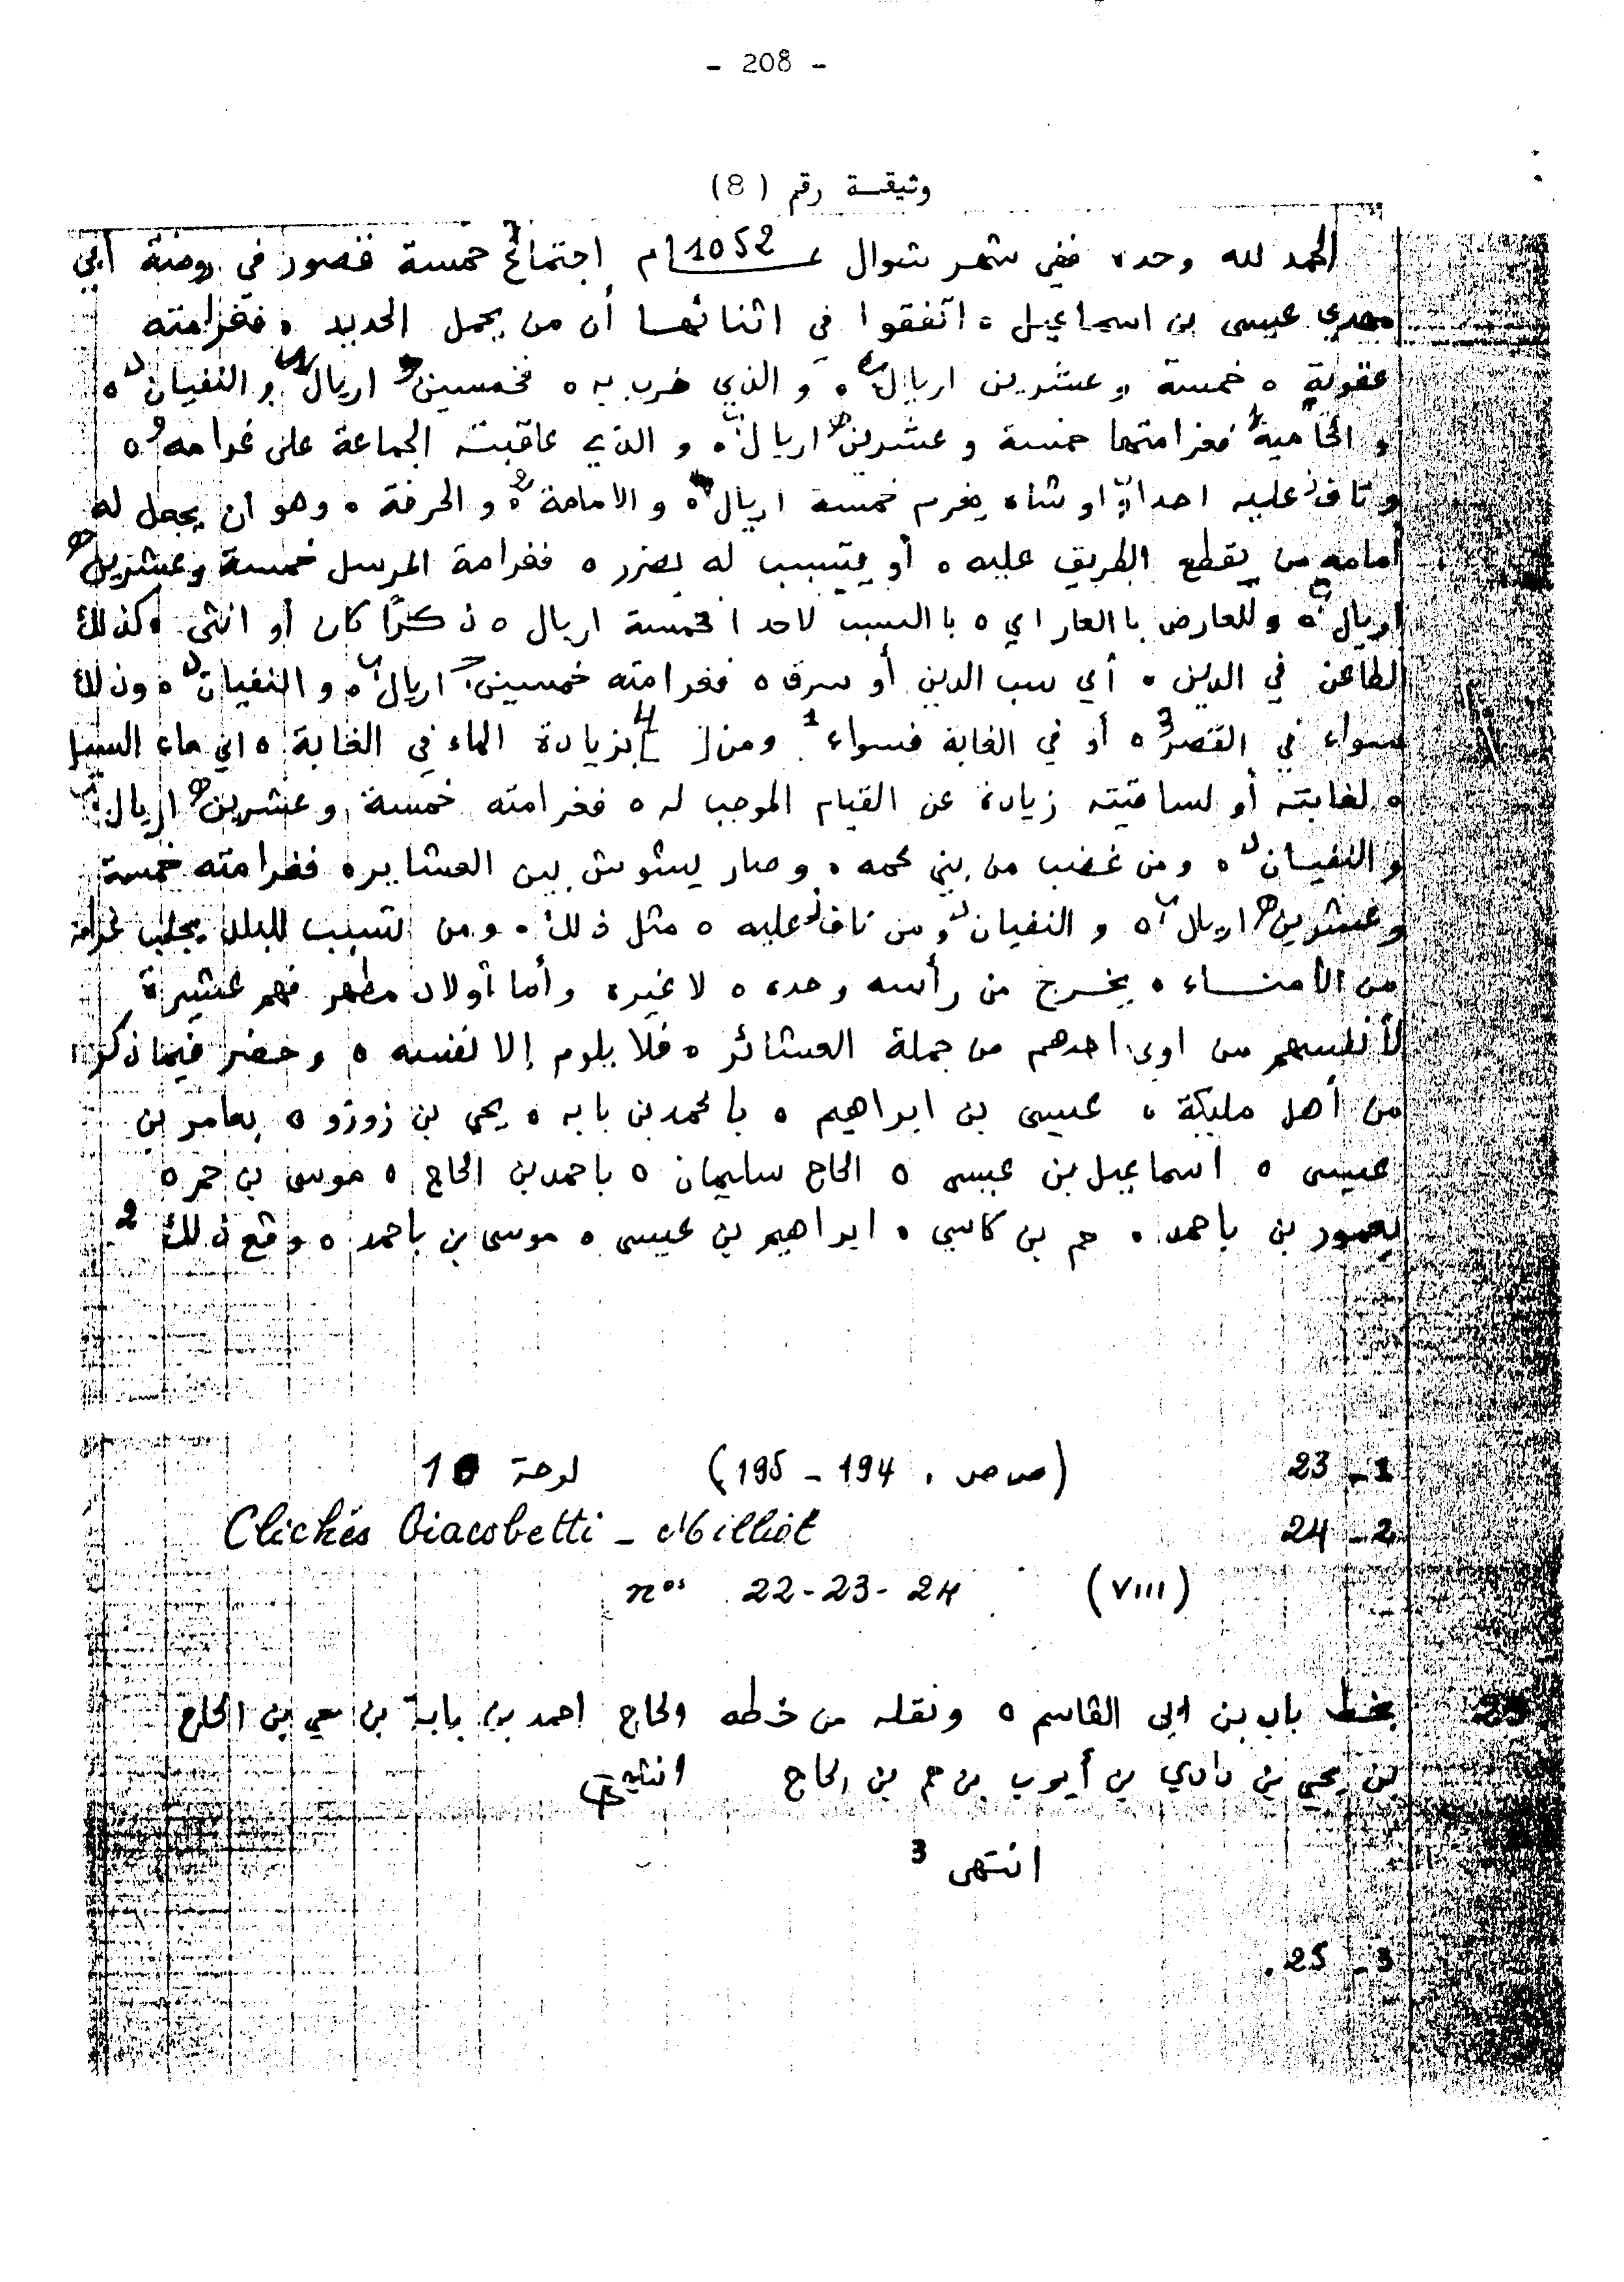 - 208 -
وثيقة رقم (8)
الحمد لله وحده ففي شهر شوال عـ1052ـام اجتماع خمسة قصور في روضة أبي
مهدي عيسى بن اسماعيل ه اتفقوا في اثنائها أن من يحمل الحديد ه فغرامته
عقوبة ه خمسة وعشرين اريال ه و الذي ضرب به ه فخمسين اريال و النفيان ه
و الحامية فغرامتها خمسة و عشرين اريال ه و الذي عاقبته الجماعة على غرامه ه
و ناف عليه احدا او شاه يغرم خمسة اريال ه و الامامة ه و الحرفة ه وهو ان يجعل له
أمامه من يقطع الطريق عليه ه أو يتسبب له بضرر ه فغرامة المرسل خمسة وعشرين
اريال ه وللعارض با العار اي ه با السبب لاحد ا خمسة اريال ه ذكرًا كان أو انثى ه كذلك
الطاعن في الدين ه أي سب الدين أو سرق ه فغرامته خمسين اريال ه و النفيان ه وذلك
سواء في القصر 3 ه أو في الغابة فسواء 1 ومن [ ] 4 بزيادة الماء في الغابة ه اي ماء السيل
ه لغابته أو لساقيته زيادة عن القيام الموجب له ه فغرامته خمسة وعشرين اريال
و النفيان ه ومن غضب من بني عمه ه وصار يشوش بين العشاير ه فغرامته خمسة
وعشرين اريال ه و النفيان ومن ناف عليه ه مثل ذلك ه ومن تسبب للبلد بجلب غرامة
من الأمناء ه يخرج من رأسه وحده ه لا غيره وأما أولاد مطهر فهم عشيرة
لأنفسهم من اوى احدهم من جملة العشائر ه فلا يلوم إلا نفسه ه وحضر فيما ذكر
من أهل مليكة ه عيسى بن ابراهيم ه بامحمد بن بابه ه يحي بن زوزو ه بعامر بن
عيسى ه اسماعيل بن عيسى ه الحاج سليمان ه باحمد بن الحاج ه موسى بن حم ه
بن باحمد ه حم بن كاسي ه ابراهيم بن عيسى ه موسى بن باحمد ه وقع ذلك 2
1 - 23 (صص . 194 - 195) لوحة 10
2 - 24 Clichés Giacobetti - Milliot
(VIII) nos 22-23-24
بخط باب بن ابي القاسم ه ونقله من خطه الحاج احمد بن بابة بن الحاج
بن يحي بن دادي بن أيوب بن حم بن الحاج
انتهى 3
3 - 25.